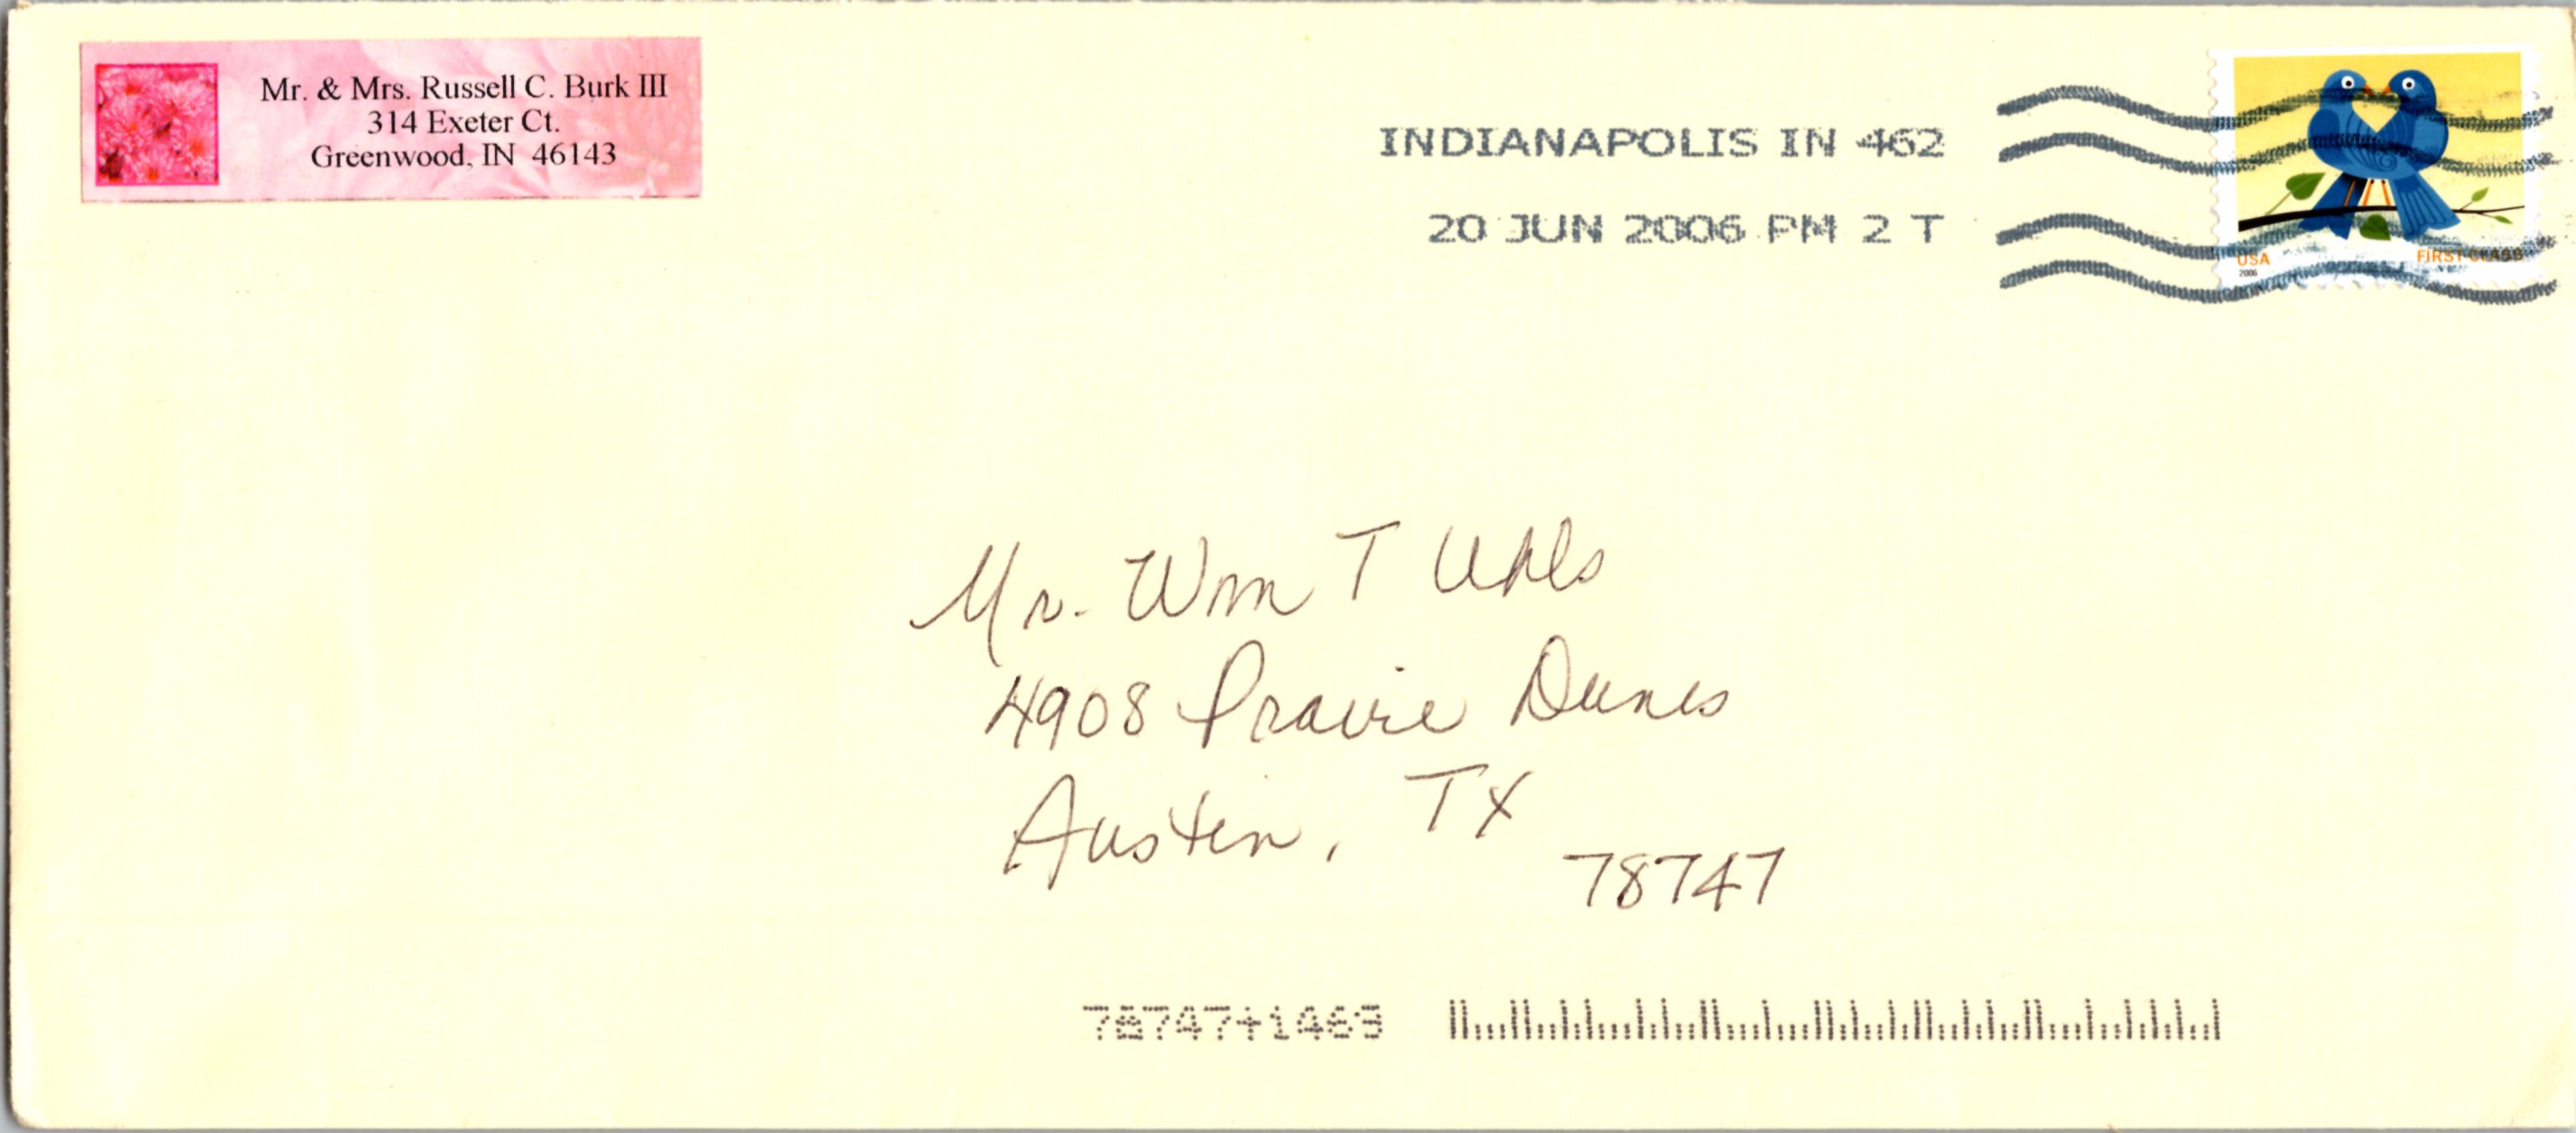 Mr. & Mrs. Russell C. Burk III
314 Exeter Ct.
Greenwood, IN 46143
INDIANAPOLIS IN 462
20 JUN 2006 PM 2 T
USA
FIRST-CLASS
2006
Mr. Wm T Uhls
4908 Prairie Dunes
Austin, TX
78747
78747+1463